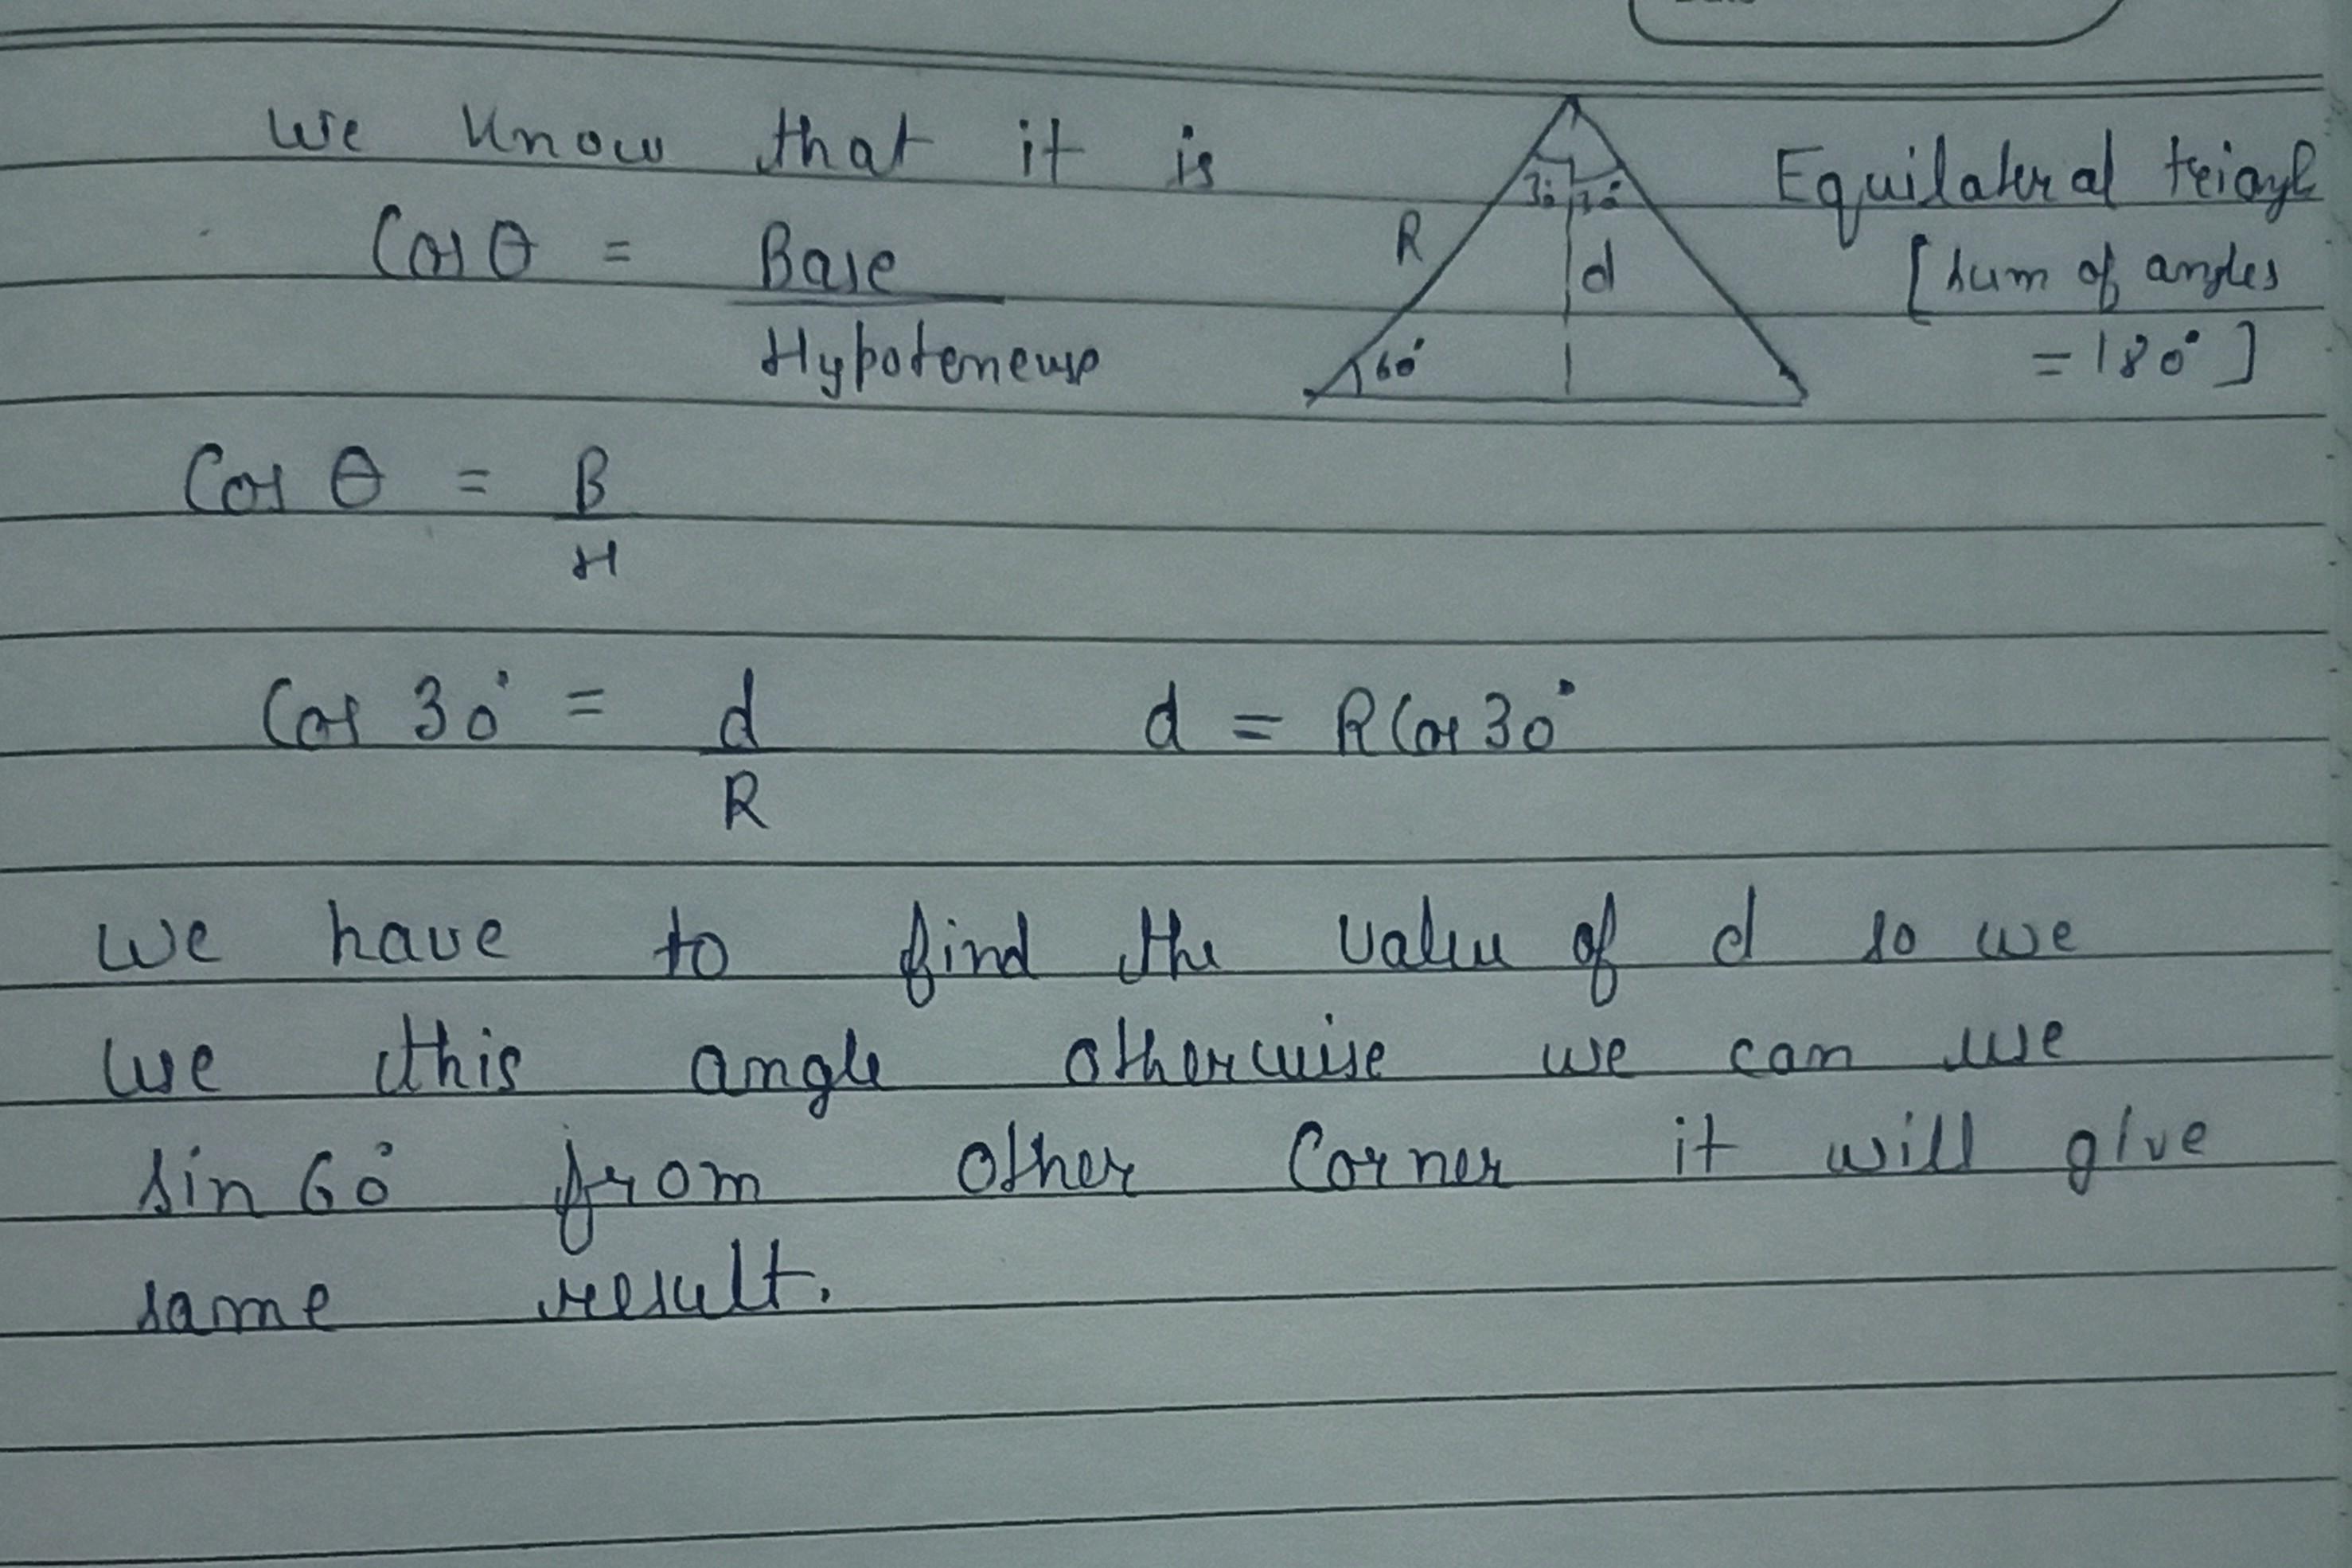 We know that it is
Equilateral triangle
[sum of angles
= 180°]
R
30° 30°
d
60°
Cos θ = Base
Hypoteneuse
Cos θ = B
H
Cos 30° = d
R
d = R Cos 30°
We have to find the value of d so we
use this angle otherwise we can use
sin 60° from other Corner it will give
same result.